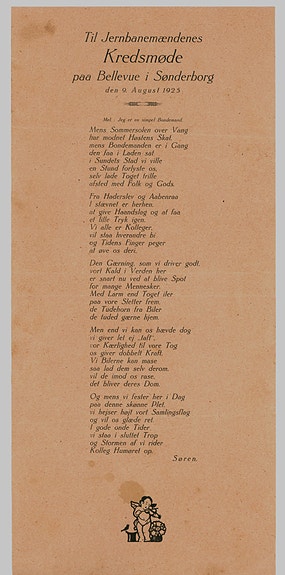 Til Jernbanemændenes
Kredsmøde
paa Bellevue i Sønderborg
den 9. August 1925
Mel.: Jeg er en simpel Bondemand
Mens Sommersolen over Vang
har modnet Høstens Skat,
mens Bondemanden er i Gang
den faa i Laden sat,
i Sundets Stad vi ville
en Stund forlyste os,
selv lade Toget trille
afsted med Folk og Gods.
Fra Haderslev og Aabenraa
I stævnet er herhen,
at give Haandslag og at faa
et lille Tryk igen.
Vi alle er Kolleger,
vil staa hverandre bi
og Tidens Finger peger
at øve os deri.
Den Gærning, som vi driver godt,
vort Kald i Verden her
er snart nu ved at blive Spot
for mange Mennesker.
Med Larm end Toget iler
paa vore Sletter frem,
de Tudehorn fra Biler
de tuded gærne hjem.
Men end vi kan os hævde dog
vi giver let ej „tøft“,
vor Kærlighed til vore Tog
os giver dobbelt Kraft.
Vi Bilerne kan mase
saa lad dem selv derom,
vil de imod os rase,
det bliver deres Dom.
Og mens vi fester her i Dag
paa denne skønne Plet,
vi hejser højt vort Samlingsflag
og vil os glæde ret.
I gode onde Tider
vi staa i sluttet Trop
og Stormen af vi rider
Kolleg Humøret op.
Søren.